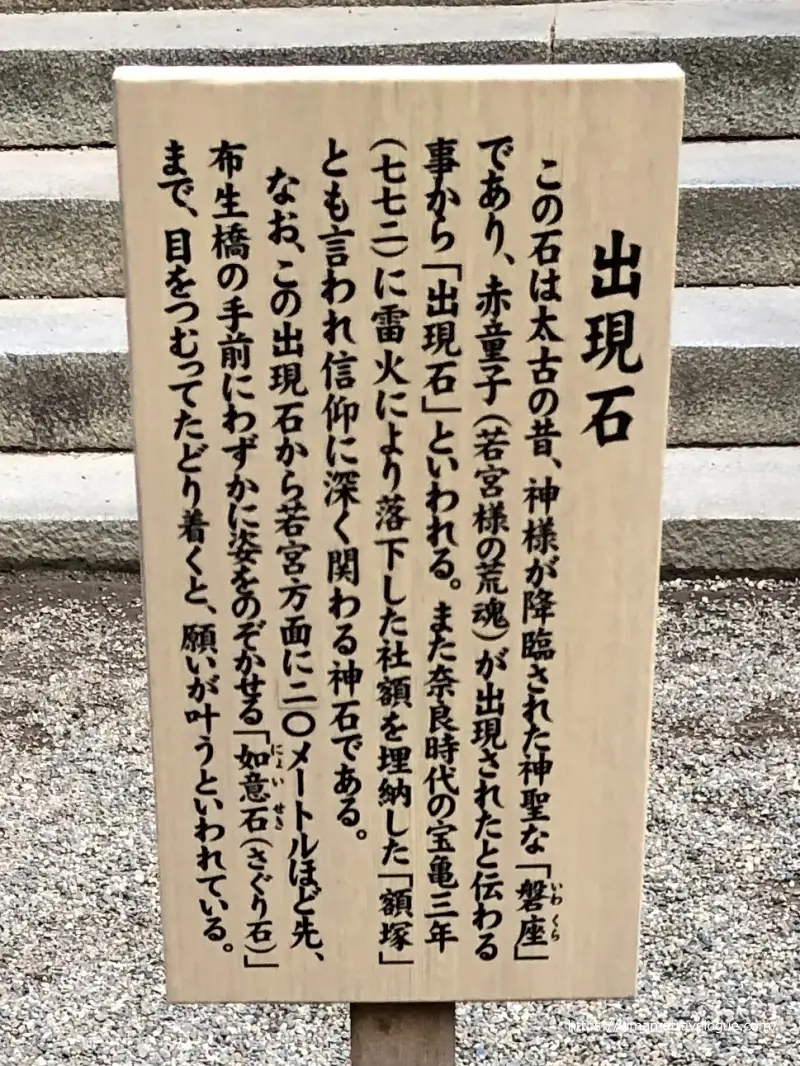 出現石
この石は太古の昔、神様が降臨された神聖な「磐座」
いわくら
であり、赤童子（若宮様の荒魂）が出現されたと伝わる
事から「出現石」といわれる。また奈良時代の宝亀三年
（七七二）に雷火により落下した社額を埋納した「額塚」
とも言われ信仰に深く関わる神石である。
なお、この出現石から若宮方面に二〇メートルほど先、
布生橋の手前にわずかに姿をのぞかせる「如意石（さぐり石）」
にょいせき
まで、目をつむってたどり着くと、願いが叶うといわれている。